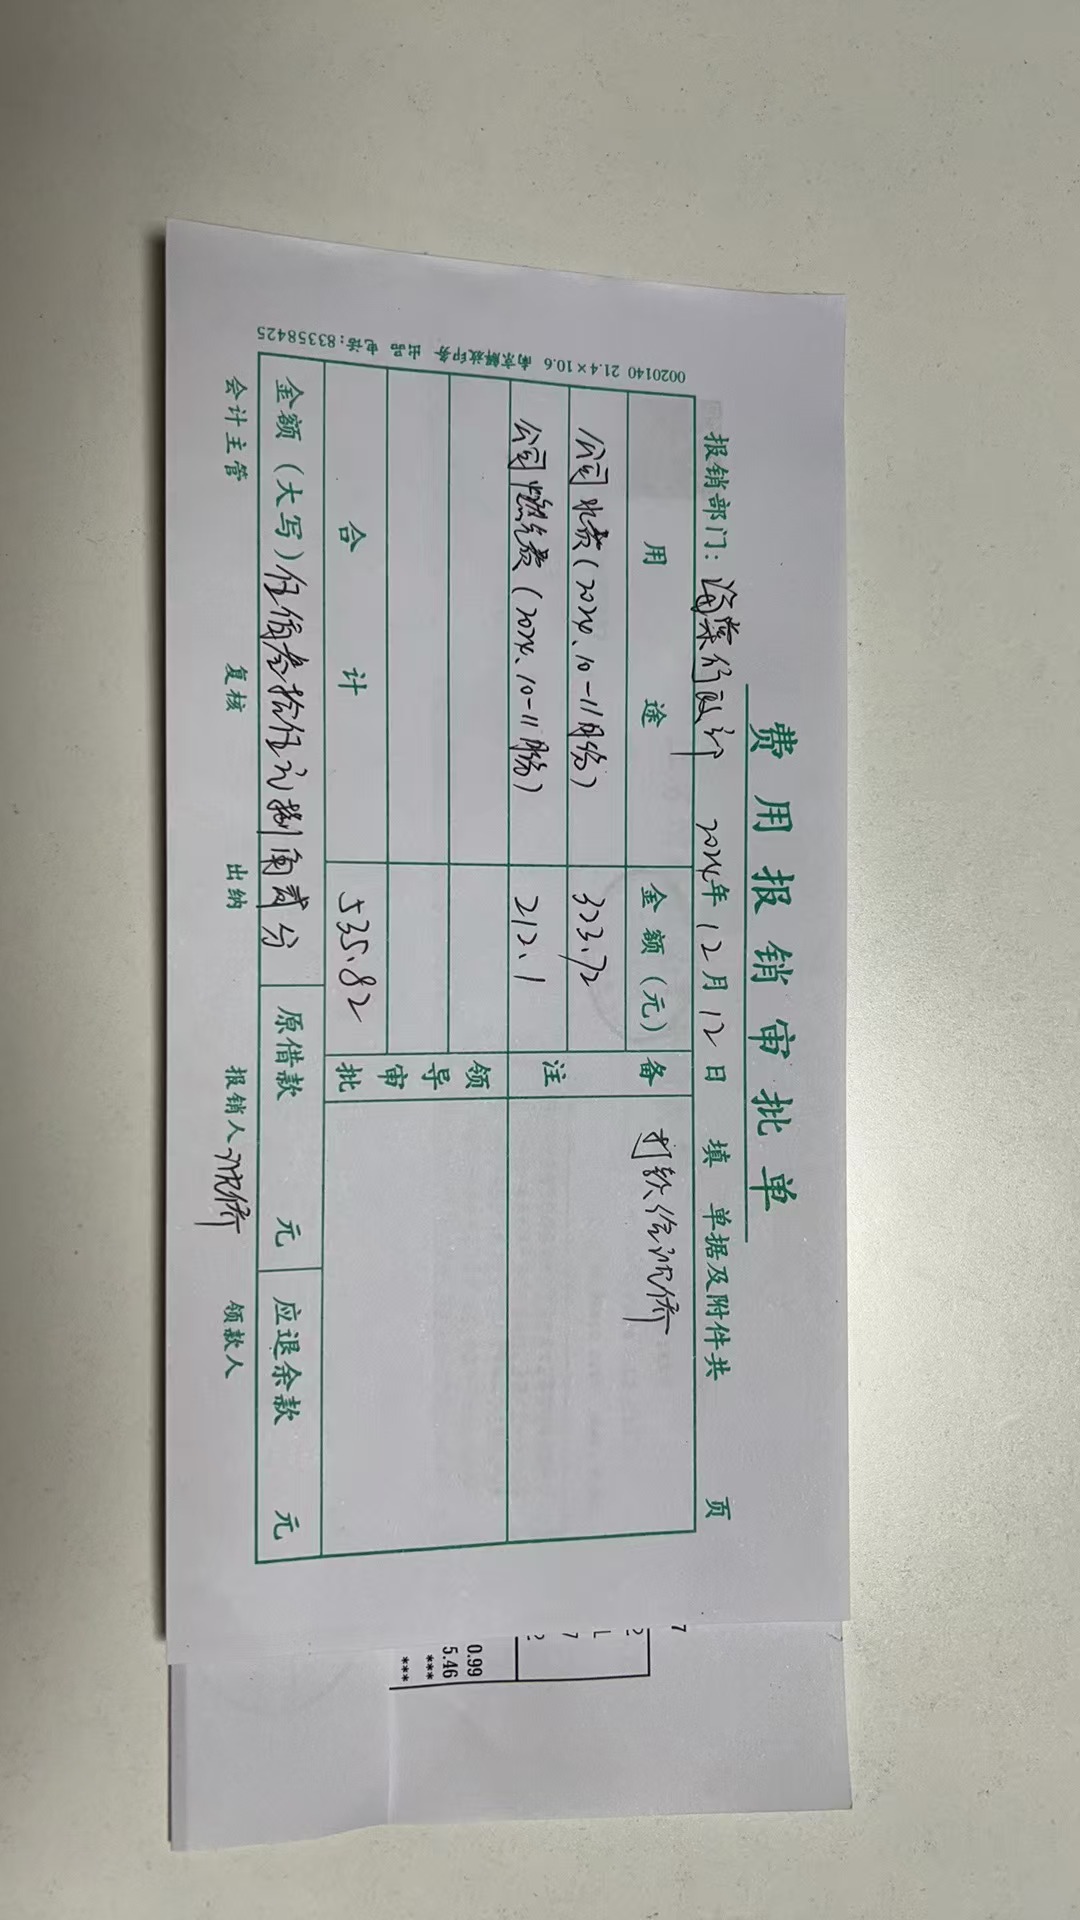 费用报销审批单
报销部门：海棠行政部 2024年12月12日填 单据及附件共 页
用途 金额（元） 备注 打款给沈侨
公司水费（2024.10-11月份） 323.72
公司燃气费（2024.10-11月份） 212.1
领导审批
合计 535.82
金额（大写）伍佰叁拾伍元捌角贰分 原借款 元 应退余款 元
会计主管 复核 出纳 报销人 沈侨 领款人
0020140 21.4×10.6 南京解放印务 出品 电话：83358425
0.99
5.46
***
***
7